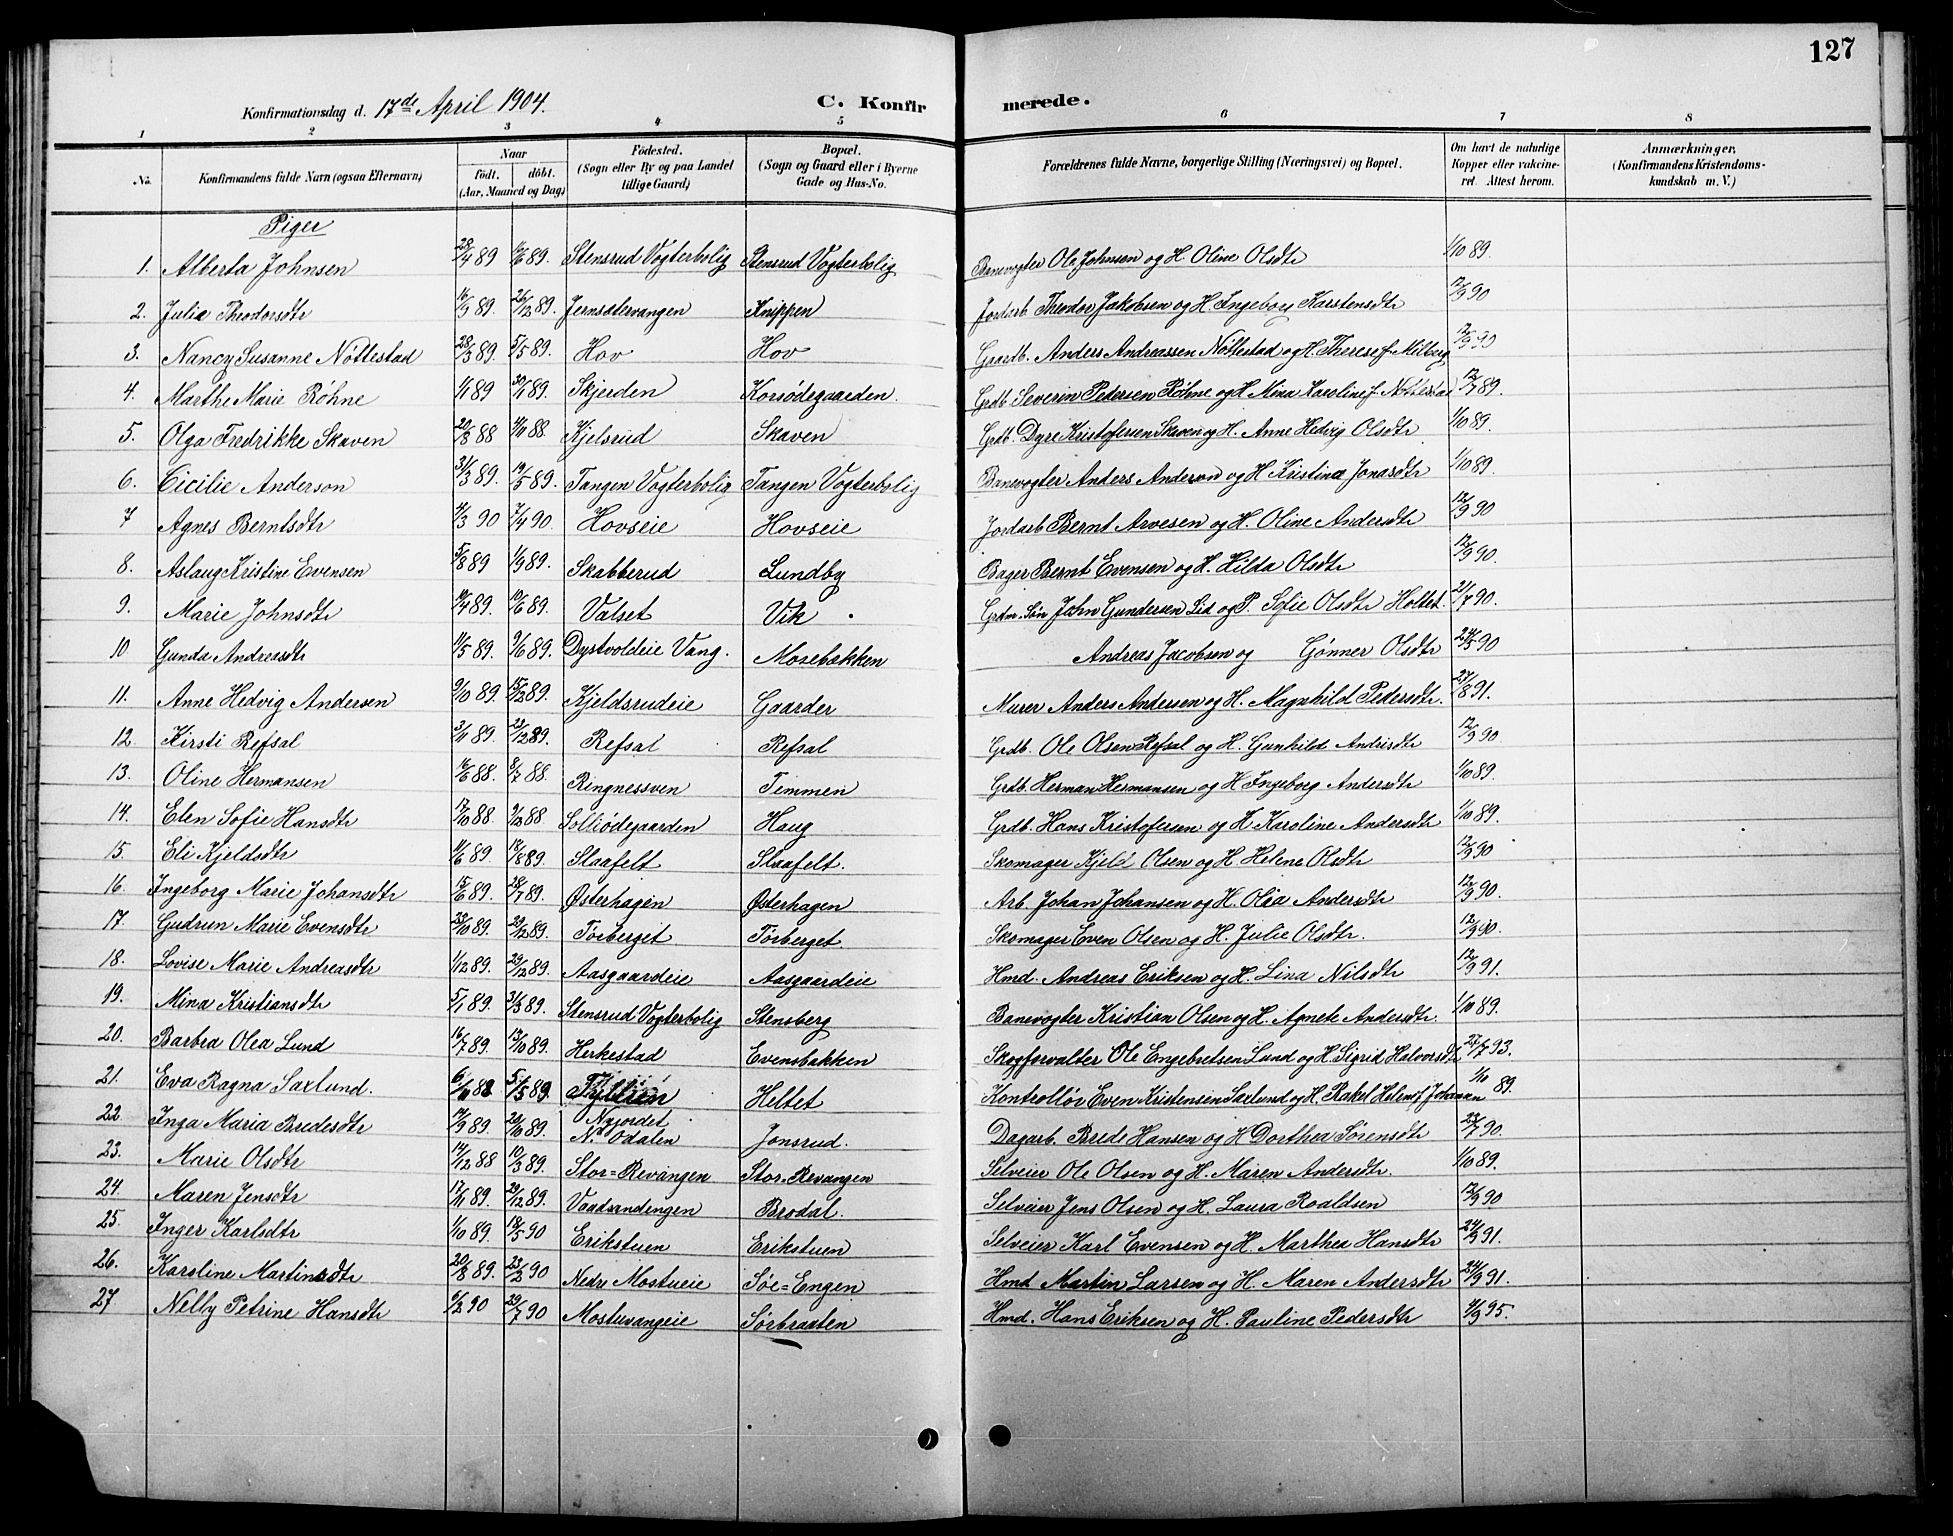 127
Konfirmationsdag d. 17de April 1904.
C. Konfirmerede.
1 2 3 4 5 6 7 8
No. Konfirmandens fulde Navn (ogsaa Efternavn) Naar födt. döbt. (Aar, Maaned og Dag) Födested. (Sogn eller By og paa Landet tillige Gaard) Bopæl. (Sogn og Gaard eller i Byerne Gade og Hus-No. Forældrenes fulde Navne, borgerlige Stilling (Næringsvei) og Bopæl. Om havt de naturlige Kopper eller vakcineret. Attest herom. Anmærkninger, (Konfirmandens Kristendomskundskab m. V.)
Piger
1. Alberta Johnsen 28/4 89 10/6 89. Stensrud Vogterbolig Stensrud Vogterbolig Banevogter Ole Johnsen og H. Oline Olsdtr 1/10 89.
2. Julie Theodorsdtr 16/9 89. 26/12 89. Jernsætervangen Knippen Jordarb. Theodor Jakobsen og H. Ingeborg Karstensdtr 12/9 90
3. Nancy Susanne Nöttestad 28/3 89. 5/5 89. Hov Hov Gaardb. Anders Andreassen Nöttestad og H. Therese f. Milberg 12/9 90
4. Marthe Marie Röhne 1/1 89 30/1 89. Skjerden Korsödegaarden. Grdb. Severin Pedersen Röhne og H Mina Karoline f. Nöttestad 12/7 89.
5. Olga Fredrikke Skaven 20/8 88 4/11 88. Kjelsrud Skaven Grdb. Dyre Kristofersen Skaven og H. Anne Hedvig Olsdtr 1/10 89.
6. Cicilie Anderson 31/3 89. 19/5 89. Tangen Vogterbolig Tangen Vogterbolig Banevogter Anders Anderson og H Kristina Jonasdtr 1/10 89.
7 Agnes Berntsdtr 4/3 90 7/4 90. Hovseie Hovseie Jordarb Bernt Arvesen og H. Oline Andersdtr 12/9 90
8. Aslaug Kristine Evensen 5/8 89 1/9 89. Skabberud Lundby Bager Bernt Evensen og H. Hilda Olsdtr 12/9 90.
9. Marie Johnsdtr 14/4 89. 10/6 89. Valset Vik Grdm. Sön John Gundersen Lid og P. Sofie Olsdtr Holtet. 21/7 90.
10 Gunda Andreasdtr 11/5 89. 9/6 89. Dystvoldeie Vang. Mosebækken Andreas Jacobsen og Gönner Olsdtr 24/5 90
11. Anne Hedvig Andersen 9/10 89. 15/12 89. Kjeldsrudeie Gaarder Murer Anders Andersen og H. Magnhild Pedersdtr. 27/8 91.
12 Kirsti Refsal 3/11 89. 22/12 89. Refsal Refsal Grdb. Ole Olsen Refsal og H. Gunhild Andersdtr 12/9 90.
13. Oline Hermansen 16/6 88. 8/7 88. Ringnessven Timmen Grdb. Herman Hermansen og H Ingeborg Andersdtr 1/10 89.
14. Elen Sofie Hansdtr 17/10 88. 9/12 88. Solliödegaarden Haug Grdb. Hans Kristofersen og H. Karoline Andersdtr 1/10 89.
15. Eli Kjeldsdtr 11/6 89. 18/8 89. Slaafelt Slaafelt. Skomager Kjeld Olsen og H. Helene Olsdtr 12/9 90
16. Ingeborg Marie Johansdtr 15/6 89. 28/7 89. Østerhagen Østerhagen Arb. Johan Johansen og H. Olia Andersdtr 12/9 90.
17. Gudrun Marie Evensdtr 23/10 89. 29/12 89. Torberget Torberget Skomager Even Olsen og H. Julie Olsdtr. 12/9 90.
18. Lovise Marie Andreasdtr 1/12 89. 29/12 89. Aasgaardeie Aasgaardeie Hmd. Andreas Eriksen og H. Lina Nilsdtr 12/9 91.
19. Mina Kristiansdtr 5/1 89. 31/3 89. Stensrud Vogterbolig Stensberg Banevogter Kristian Olsen og H. Agnete Andersdtr. 1/10 89.
20. Barbra Olea Lund 16/7 89. 13/10 89. Herkestad Evensbakken Skogforvalter Ole Engebretsen Lund og H. Sigrid Halvorsdtr 27/7 93.
21. Eva Ragna Saxlund. 5/5 89. Heltet Kontrollör Even Kristensen Saxlund og H. Rakel Helene f. Johansen 1/10 89.
22 Inga Maria Bredesdtr 14/9 89. 20/10 89. Nyjordet Nd Odalen Jonsrud. Dagarb. Brede Hansen og H Dorthea Sörensdtr 23/7 90.
23. Marie Olsdtr 14/12 88 10/3 89. Stor=Revangen Stor-Revangen Selveier Ole Olsen og H. Maren Andersdtr. 1/10 89.
24. Maren Jensdtr 17/11 89. 29/12 89. Vaatsandengen Brodal. Selveier Jens Olsen og H. Laura Roaldsen 12/9 90
25. Inger Karlsdtr 1/10 89. 18/5 90 Erikstuen Erikstuen Selveier Karl Evensen og H. Marthea Hansdtr 24/9 91.
26. Karoline Martinsdtr 20/8 89. 23/2 90 Nedre Mostueie Söe=Engen Hmd Martin Larsen og H. Maren Andersdtr 24/9 91.
27 Nelly Petrine Hansdtr 6/2 90 29/7 90 Mostuvangeie Sörbraaten Hmd. Hans Eriksen og H. Pauline Pedersdtr 4/9 95.